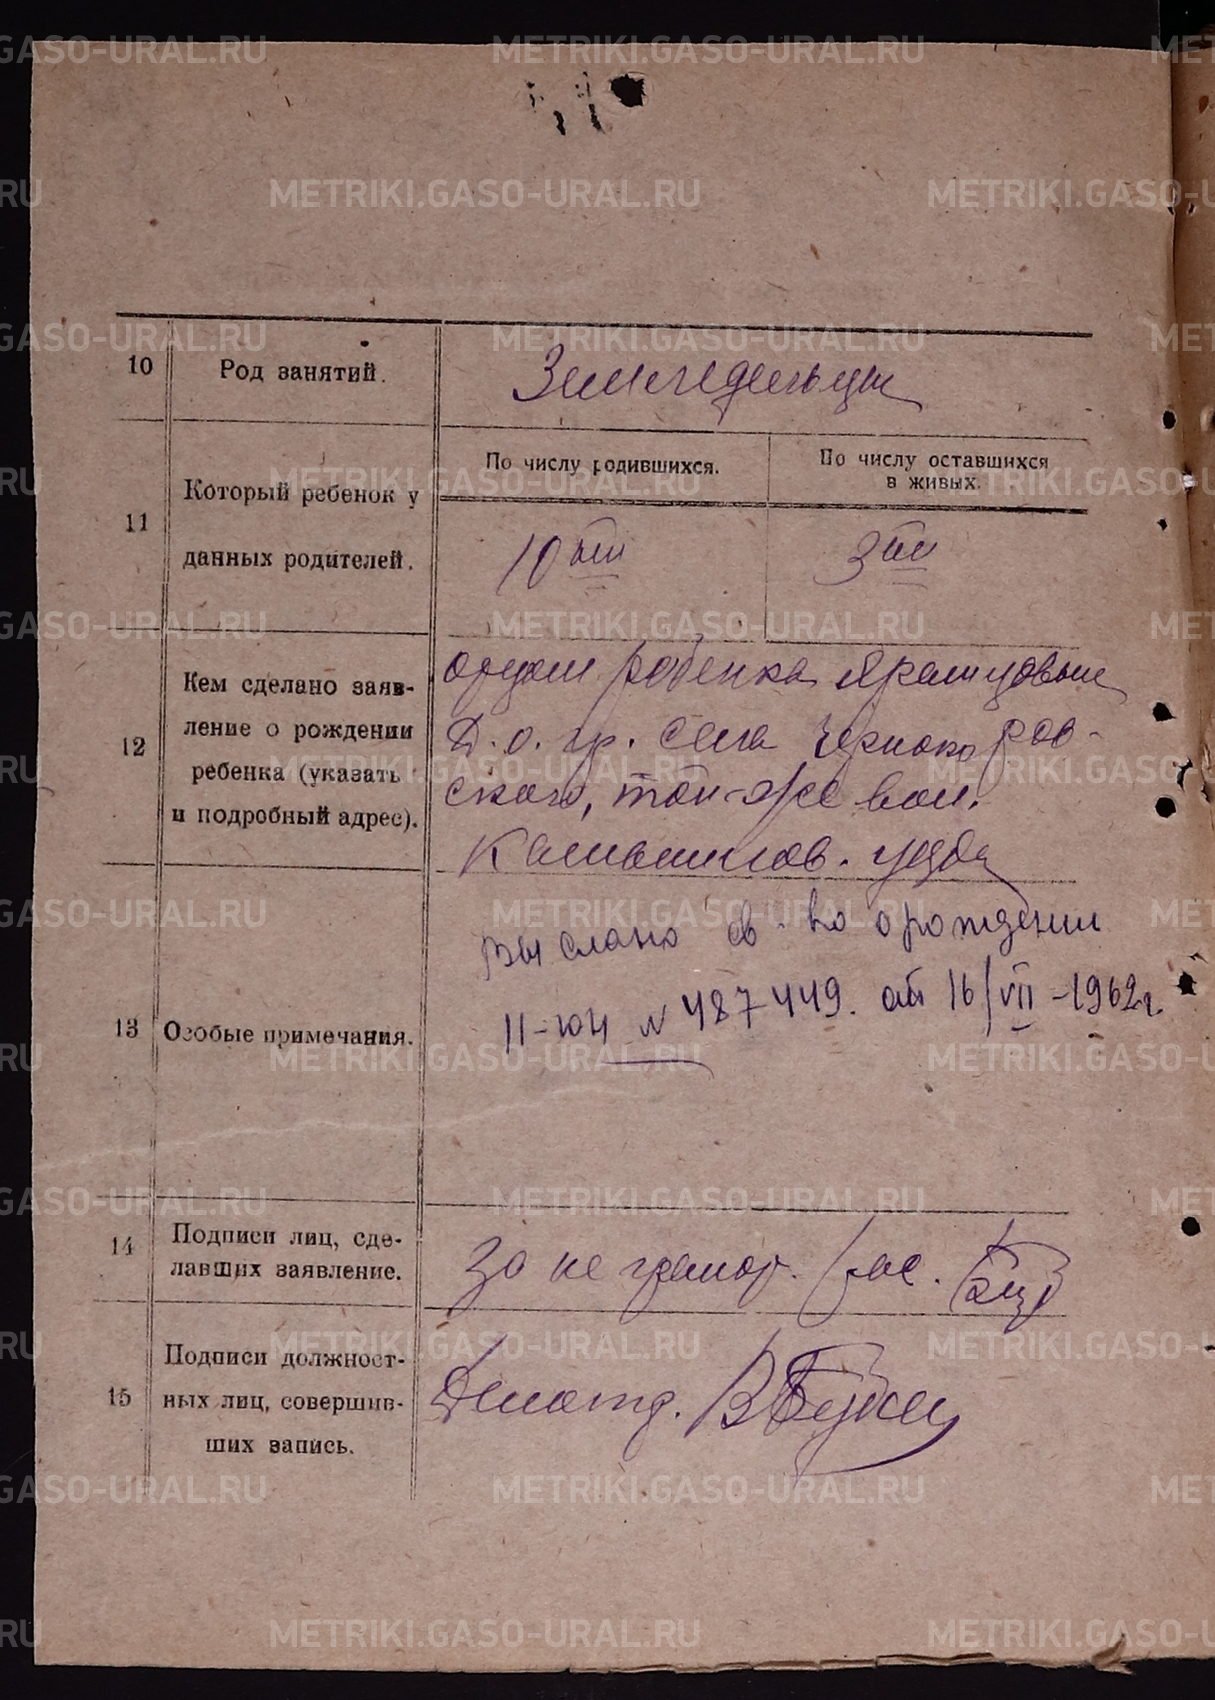 METRIKI.GASO-URAL.RU
10 Род занятий. Земледельцы
11 Который ребенок у данных родителей.
По числу родившихся.
По числу оставшихся
в живых.
10ый
3ий
12 Кем сделано заяв-
ление о рождении
ребенка (указать
и подробный адрес).
отцом ребенка
Д. о. гр. села Черноковров-
ского, той-же вол.
Камышлов. уезда
13 Особые примечания.
Выслано св-во о рождении
II-ЮИ № 487449. от 16/VII-1962г.
14 Подписи лиц, сде-
лавших заявление.
За не грамот. рас.
15 Подписи должност-
ных лиц, совершив-
ших запись.